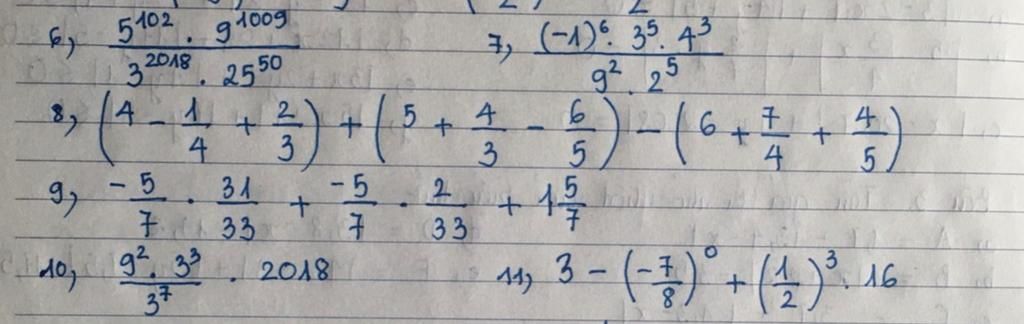 6, \frac{5^{102} \cdot 9^{1009}}{3^{2018} \cdot 25^{50}} 7, \frac{(-1)^6 \cdot 3^5 \cdot 4^3}{9^2 \cdot 2^5}
8, \left(4 - \frac{1}{4} + \frac{2}{3}\right) + \left(5 + \frac{4}{3} - \frac{6}{5}\right) - \left(6 + \frac{7}{4} + \frac{4}{5}\right)
9, \frac{-5}{7} \cdot \frac{31}{33} + \frac{-5}{7} \cdot \frac{2}{33} + 1\frac{5}{7}
10, \frac{9^2 \cdot 3^3}{3^7} \cdot 2018 11, 3 - \left(-\frac{7}{8}\right)^0 + \left(\frac{1}{2}\right)^3 \cdot 16